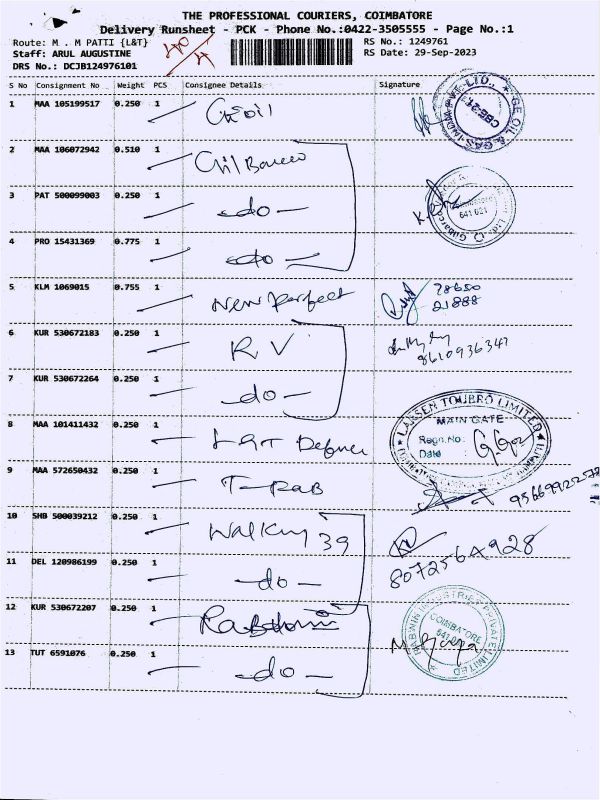 THE PROFESSIONAL COURIERS, COIMBATORE
Delivery Runsheet - PCK - Phone No.:0422-3505555 - Page No.:1
Route: M . M PATTI {L&T} RS No.: 1249761
Staff: ARUL AUGUSTINE RS Date: 29-Sep-2023
DRS No.: DCJB124976101
S No Consignment No Weight PCS Consignee Details Signature
1 MAA 105199517 0.250 1
2 MAA 106072942 0.510 1
3 PAT 500099003 0.250 1 -do-
4 PRO 15431369 0.775 1 -do-
5 KLM 1069015 0.755 1 New Perfect
6 KUR 530672183 0.250 1 R V
7 KUR 530672264 0.250 1 -do-
8 MAA 101411432 0.250 1 L&T Defence
LARSEN TOUBRO LIMITED
MAIN GATE
Regn.No.
Date
9 MAA 572650432 0.250 1 T-Rab
10 SHB 500039212 0.250 1 Walking 39
8072564928
11 DEL 120986199 0.250 1 -do-
12 KUR 530672207 0.250 1
COIMBATORE
13 TUT 6591076 0.250 1 -do-